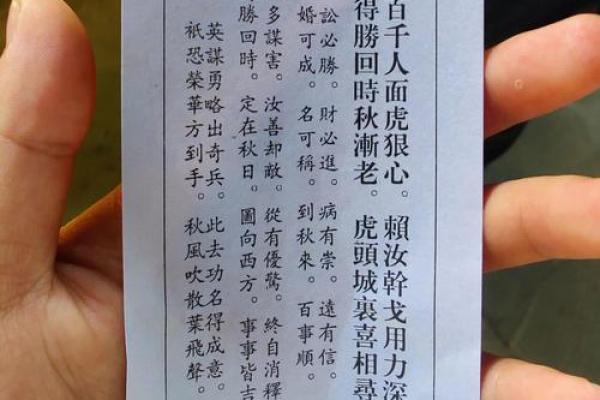 百千人面虎狠心。賴汝幹戈用力深
得勝回時秋漸老。虎頭城裏喜相尋
訟必勝。財必進。病有崇。遠有信。
婚可成。名可稱。到秋來。百事順。
多謀害。汝善却敵。從有優驚。終自消釋
勝回時。定在秋日。圖向西方。事事皆吉
英謀勇略出奇兵。此去功名得成意。
祇恐榮華方到手。秋風吹散葉飛聲。